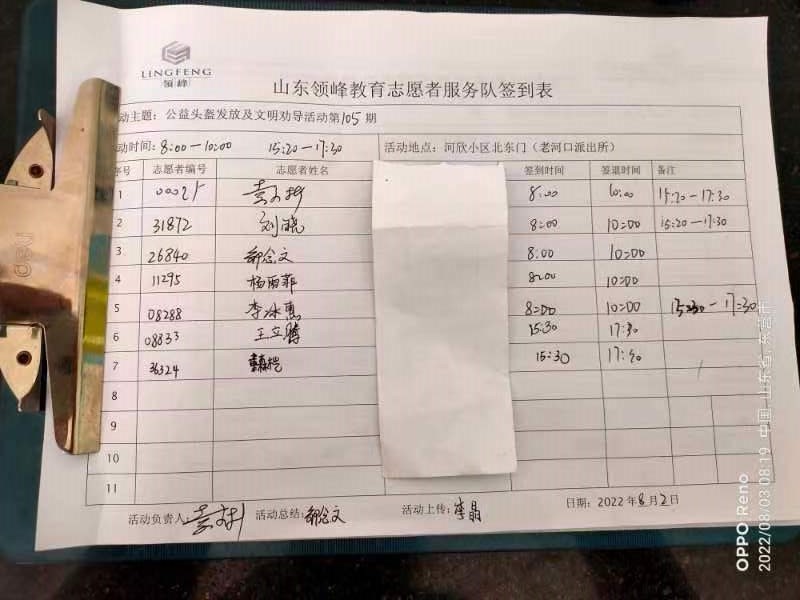 LINGFENG
领峰
山东领峰教育志愿者服务队签到表
动主题: 公益头盔发放及文明劝导活动第105期
动时间: 8:00—10:00 15:20—17:30 活动地点: 河欣小区北东门（老河口派出所）
序号 志愿者编号 志愿者姓名 签到时间 签退时间 备注
1 00021 8:00 10:00 15:20-17:30
2 31872 刘晓 8:00 10:00 15:20-17:30
3 26840 郭念文 8:00 10:00
4 11295 杨丽菲 8:00 10:00
5 08288 李冰惠 8:00 10:00 17:30
6 08833 王立腾 15:30 17:30
7 36324 15:30 17:30
8
9
10
11
活动负责人: 活动总结: 郭念文 活动上传: 李晶 日期: 2022年8月2日
OPPO Reno
2022/08/03 08:19 中国·山东省·东营市